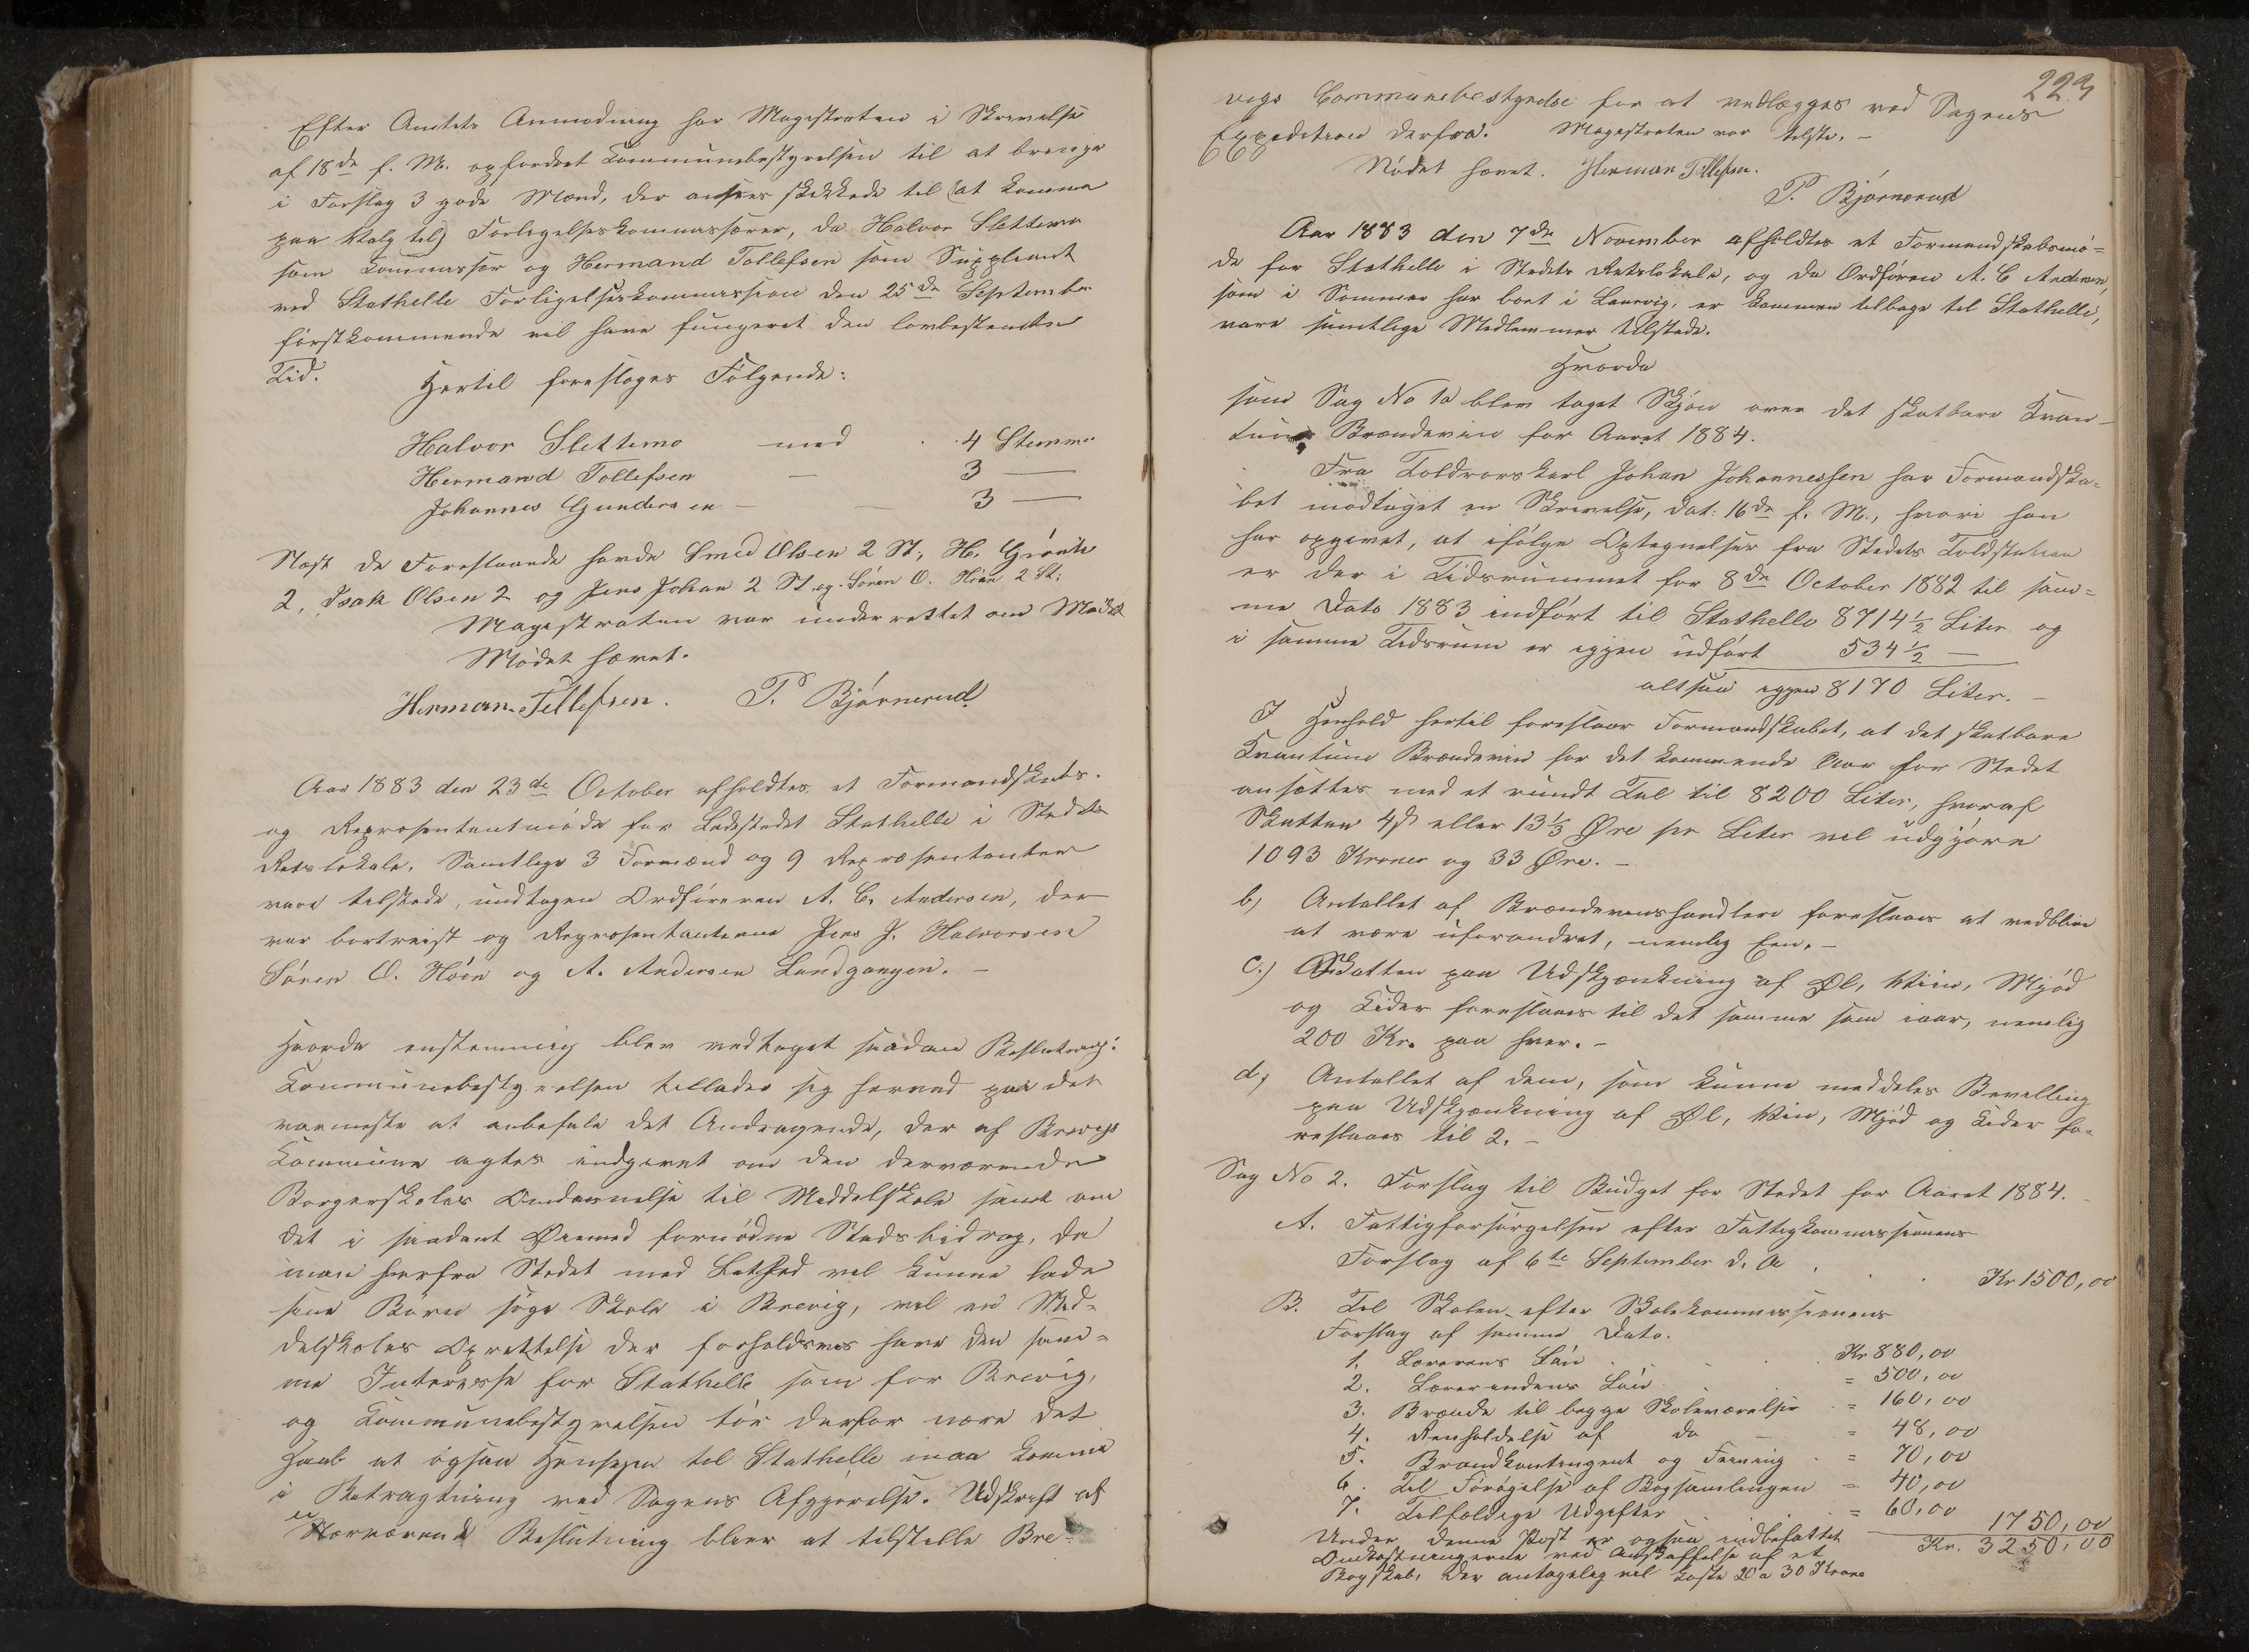 Efter Amtets Anmodning har Magistraten i Skrivelse
af 18de f. M. opfordret Kommunebestyrelsen til at bringe
i Forslag 3 gode Mænd, der ansees skikkede til (at komme
paa Valg til) Forligelseskommissærer, da Halvor Slettemo
som Kommissær og Hermand Tollefsen som Suppleant
ved Stathelle Forligelseskommission den 25de September
førstkommende vil have fungeret den lovbestemte
Tid.
Hertil foresloges Følgende:
Halvor Slettemo med 4 Stemmer
Hermand Tollefsen — 3 —
Johannes Gundersen — 3 —
Næst de Foreslaaede havde Smed Olsen 2 St, H.
2, Isak Olsen 2 og Jens Johan 2 St. og Søren O. Höen 2 St:
Magistraten var underrettet om Mødet
Mødet hævet.
Herman Tellefsen. P. Bjørnerud
Aar 1883 den 23de October afholdtes et Formandskabs-
og Repræsentantmøde for Ladestedet Stathelle i Stedets
Retslokale. Samtlige 3 Formænd og 9 Repræsentanter
vare tilstede, undtagen Ordføreren A. C. Andersen, der
var bortreist og Repræsentanterne Jens J. Halvorsen
Søren O. Höen og A. Andersen Landgangen. —
Hvorda enstemmig blev vedtaget saadan Beslutning:
Kommunebestyrelsen tillader sig herved paa det
varmeste at anbefale det Andragende, der af Brevigs
Kommune agtes indgivet om den derværende
Borgerskoles Omdannelse til Middelskole samt om
det i saadant Øiemed fornødne Statsbidrag, da
man herfra Stedet med Lethed vil kunne lade
sine Børn søge Skole i Brevig, vil en Mid-
delskoles Oprettelse der forholdsvis have den sam-
me Interesse for Stathelle som for Brevig,
og Kommunebestyrelsen tør derfor nære det
Haab at ogsaa Hensyn til Stathelle maa komme
i Betragtning ved Sagens Afgjørelse. Udskrift af
Nærværende Beslutning bliver at tilstille Bre-
223
vigs Communebestyrelse for at vedlægges ved Sagens
Expedition derfra. Magistraten var tilste. —
Mødet hævet. Herman Tellefsen.
P. Bjørnerud
Aar 1883 den 7de November afholdtes et Formandskabsmø-
de for Stathelle i Stedets Retslokale, og da Ordføren A. C Andersen,
som i Sommer har boet i Laurvig, er kommen tilbage til Stathelle,
vare samtlige Medlemmer tilstede.
Hvorda
som Sag No 1a blev taget Skjøn over det skatbare Kvan-
tum Brændevin for Aaret 1884.
Fra Toldrorskarl Johan Johannessen har Formandska-
bet modtaget en Skrivelse, dat: 16de f. M., hvori han
har opgivet, at ifølge Optegnelser fra Stedets Toldstation
er der i Tidsrummet for 8de October 1882 til sam-
me Dato 1883 indført til Stathelle 8714½ Liter og
i samme Tidsrum er igjen udført 534½ —
altsaa igjen 8170 Liter. —
I Henhold hertil foreslaar Formandskabet, at det skatbare
Kvantum Brændevin for det kommende Aar for Stedet
ansættes med et rundt Tal til 8200 Liter, hvoraf
Skatten 4ß eller 13⅓ Øre pr Liter vil udgjøre
1093 Kroner og 33 Øre. —
b) Antallet af Brændevinshandlere foreslaaes at vedblive
at være uforandret, nemlig Een. —
c.) Skatten paa Udskjænkning af Øl, Viin, Mjød
og Cider foreslaaes til det samme som iaar, nemlig
200 Kr. paa hver. —
d) Antallet af dem, som kunne meddeles Bevilling
paa Udskjænkning af Øl, Vin, Mjød og Cider fo-
reslaaes til 2. —
Sag No 2. Forslag til Budget for Stedet for Aaret 1884.
A. Fattigforsørgelsen efter Fattigkommissionens
Forslag af 6te September d. A Kr 1500,00
B. Til Skolen efter Skolekommissionens
Forslag af samme Dato.
1. Lærerens Løn Kr 880,00
2. Lærerindens Løn = 500,00
3. Brænde til begge Skoleværelser = 160,00
4. Renholdelse af do = 48,00
5. Brandkontingent og Feining = 70,00
6. Til Forøgelse af Bogsamlingen = 40,00
7. Tilfældige Udgifter = 60,00 1750,00
Under denne Post er ogsaa indbefattet Kr. 3250,00
Omkostningerne ved Anskaffelse af et
Bogskab, der antagelig vil koste 20 a 30 Kroner